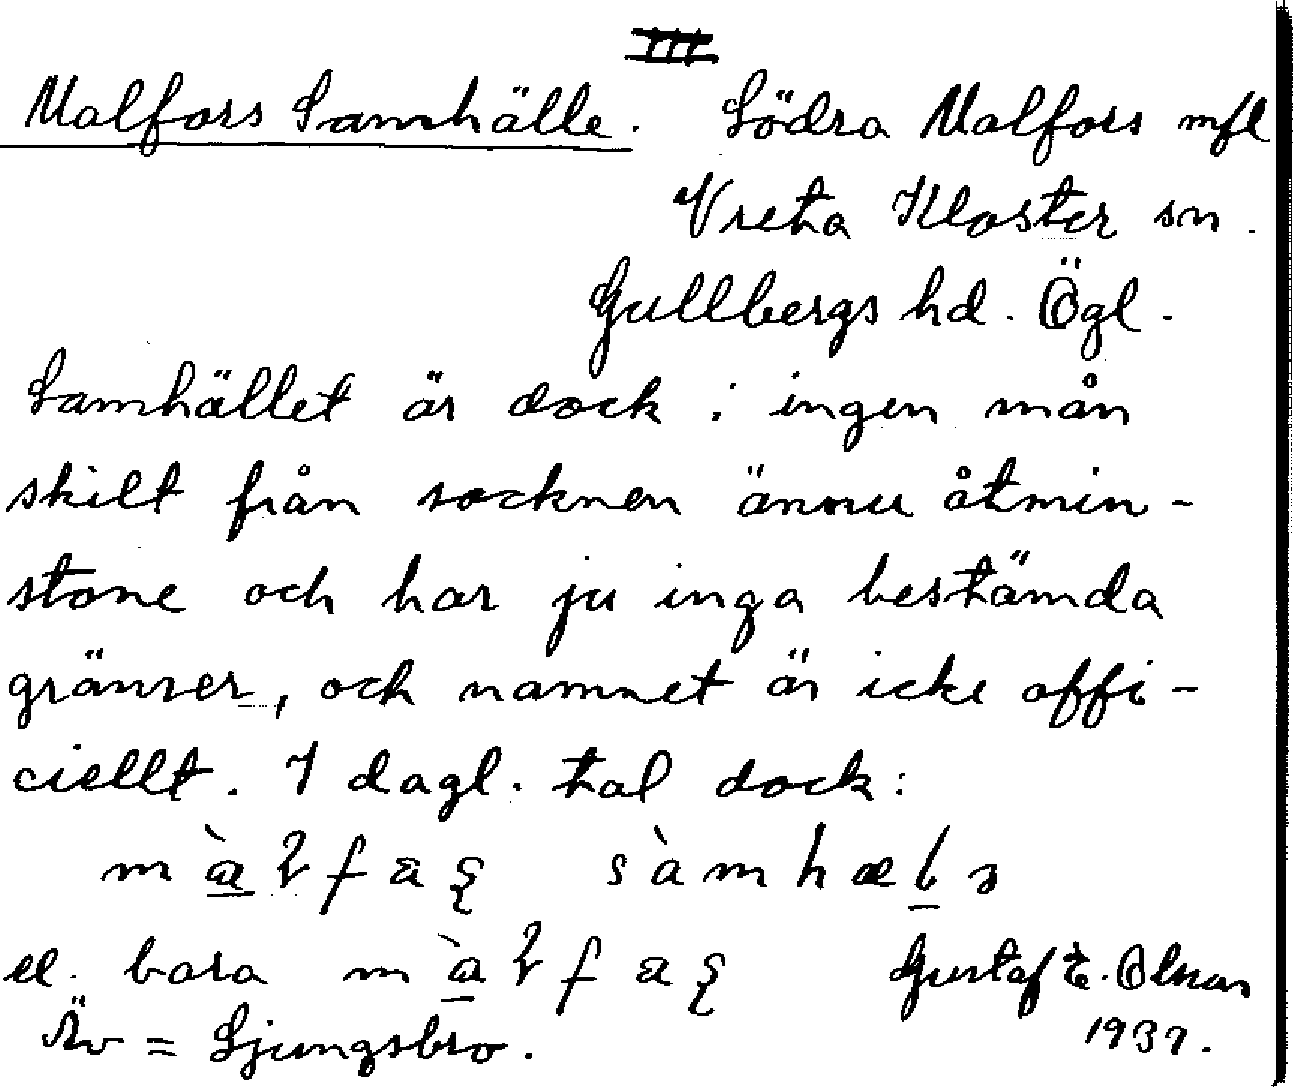 III
Malfors Samhälle. Södra Malfors mfl
Vreta Kloster sn.
Gullbergs hd. Ögl.
Samhället är dock i ingen mån
skilt från socknen ännu åtmin-
stone och har ju inga bestämda
gränser, och namnet är icke offi-
ciellt. I dagl. tal dock:
el. bara
Gustaf E. Olsson
Äv = Ljungsbro.
1937.